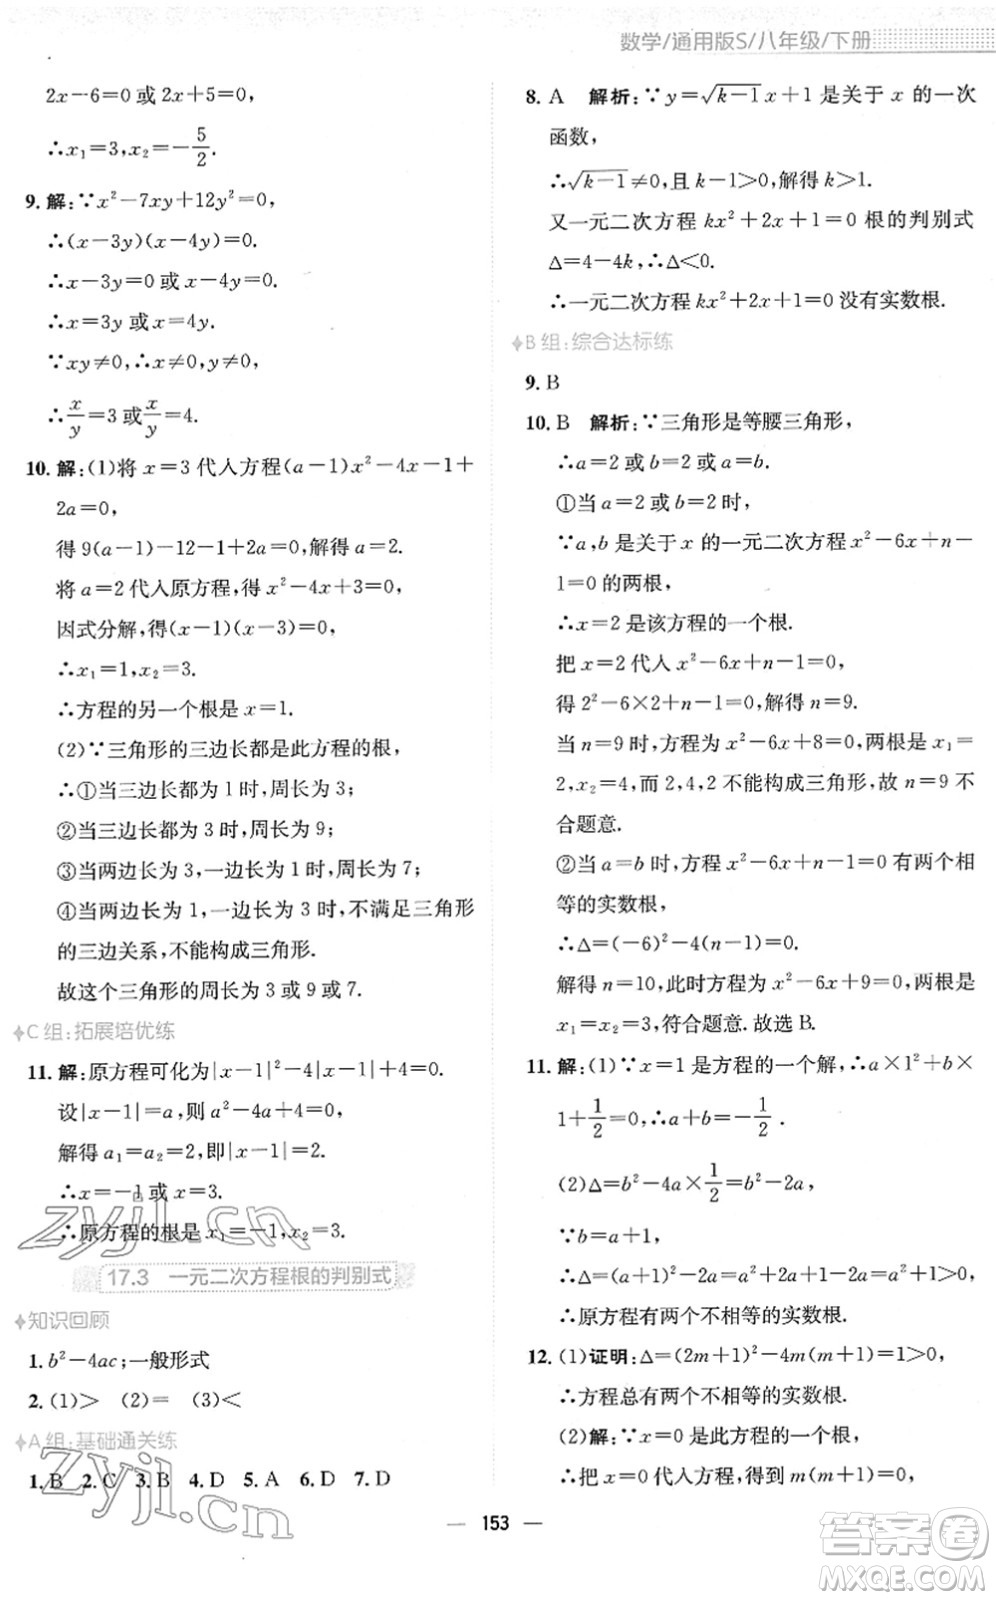 数学/通用版S/八年级/下册
2x−6=0 或 2x+5=0,
∴x₁=3,x₂=−5/2.
9. 解:∵x²−7xy+12y²=0,
∴(x−3y)(x−4y)=0.
∴x−3y=0 或 x−4y=0.
∴x=3y 或 x=4y.
∵xy≠0,∴x≠0,y≠0.
∴x/y=3 或 x/y=4.
10. 解:(1)将 x=3 代入方程(a−1)x²−4x−1+
2a=0,
得 9(a−1)−12−1+2a=0,解得 a=2.
将 a=2 代入原方程,得 x²−4x+3=0,
因式分解,得(x−1)(x−3)=0,
∴x₁=1,x₂=3.
∴方程的另一个根是 x=1.
(2)∵三角形的三边长都是此方程的根,
∴①当三边长都为 1 时,周长为 3;
②当三边长都为 3 时,周长为 9;
③当两边长为 3,一边长为 1 时,周长为 7;
④当两边长为 1,一边长为 3 时,不满足三角形
的三边关系,不能构成三角形.
故这个三角形的周长为 3 或 9 或 7.
C 组:拓展培优练
11. 解:原方程可化为|x−1|²−4|x−1|+4=0.
设|x−1|=a,则 a²−4a+4=0,
解得 a₁=a₂=2,即|x−1|=2.
∴x=−1 或 x=3.
∴原方程的根是 x₁=−1,x₂=3.
17.3 一元二次方程根的判别式
知识回顾
1. b²−4ac;一般形式
2. (1)> (2)= (3)<
A 组:基础通关练
1. B 2. C 3. B 4. D 5. A 6. D 7. D
8. A 解析:∵y=√(k−1)x+1 是关于 x 的一次
函数,
∴√(k−1)≠0,且 k−1>0,解得 k>1.
又一元二次方程 kx²+2x+1=0 根的判别式
Δ=4−4k,∴Δ<0.
∴一元二次方程 kx²+2x+1=0 没有实数根.
B 组:综合达标练
9. B
10. B 解析:∵三角形是等腰三角形,
∴a=2 或 b=2 或 a=b.
①当 a=2 或 b=2 时,
∵a,b 是关于 x 的一元二次方程 x²−6x+n−
1=0 的两根,
∴x=2 是该方程的一个根.
把 x=2 代入 x²−6x+n−1=0,
得 2²−6×2+n−1=0,解得 n=9.
当 n=9 时,方程为 x²−6x+8=0,两根是 x₁=
2,x₂=4,而 2,4,2 不能构成三角形,故 n=9 不
合题意.
②当 a=b 时,方程 x²−6x+n−1=0 有两个相
等的实数根,
∴Δ=(−6)²−4(n−1)=0.
解得 n=10,此时方程为 x²−6x+9=0,两根是
x₁=x₂=3,符合题意.故选 B.
11. 解:(1)∵x=1 是方程的一个解,∴a×1²+b×
1+1/2=0,∴a+b=−1/2.
(2)Δ=b²−4a×1/2=b²−2a,
∵b=a+1,
∴Δ=(a+1)²−2a=a²+1>0,
∴原方程有两个不相等的实数根.
12. (1)证明:Δ=(2m+1)²−4m(m+1)=1>0,
∴方程总有两个不相等的实数根.
(2)解:∵x=0 是此方程的一个根,
∴把 x=0 代入方程,得到 m(m+1)=0,
— 153 —
zyjl.cn
zyjl.cn
答案卷
MXQE.COM